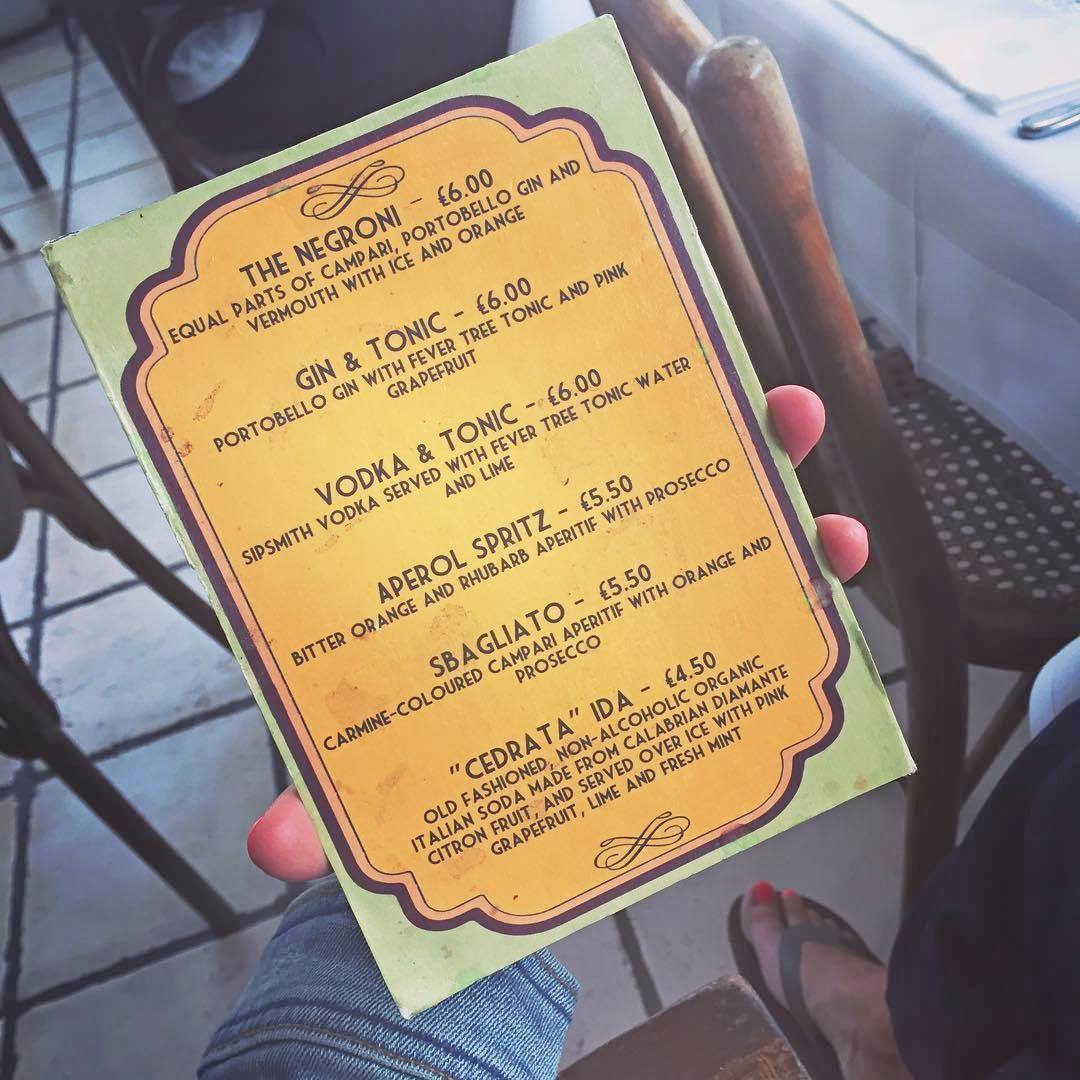 THE NEGRONI - £6.00
EQUAL PARTS OF CAMPARI, PORTOBELLO GIN AND
VERMOUTH WITH ICE AND ORANGE
GIN & TONIC - £6.00
PORTOBELLO GIN WITH FEVER TREE TONIC AND PINK
GRAPEFRUIT
VODKA & TONIC - £6.00
SIPSMITH VODKA SERVED WITH FEVER TREE TONIC WATER
AND LIME
APEROL SPRITZ - £5.50
BITTER ORANGE AND RHUBARB APERITIF WITH PROSECCO
SBAGLIATO - £5.50
CARMINE-COLOURED CAMPARI APERITIF WITH ORANGE AND
PROSECCO
"CEDRATA" IDA - £4.50
OLD FASHIONED, NON-ALCOHOLIC ORGANIC
ITALIAN SODA MADE FROM CALABRIAN DIAMANTE
CITRON FRUIT, AND SERVED OVER ICE WITH PINK
GRAPEFRUIT, LIME AND FRESH MINT